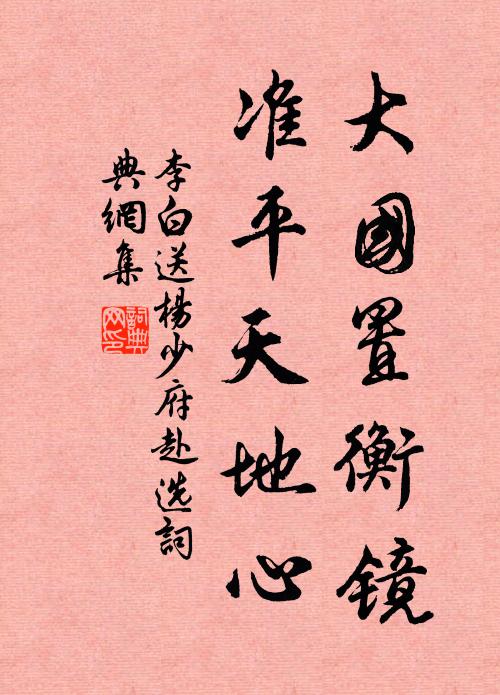 大國置衡鏡
准平天地心
李白送楊少府赴选詞
典網集
詞典
网印